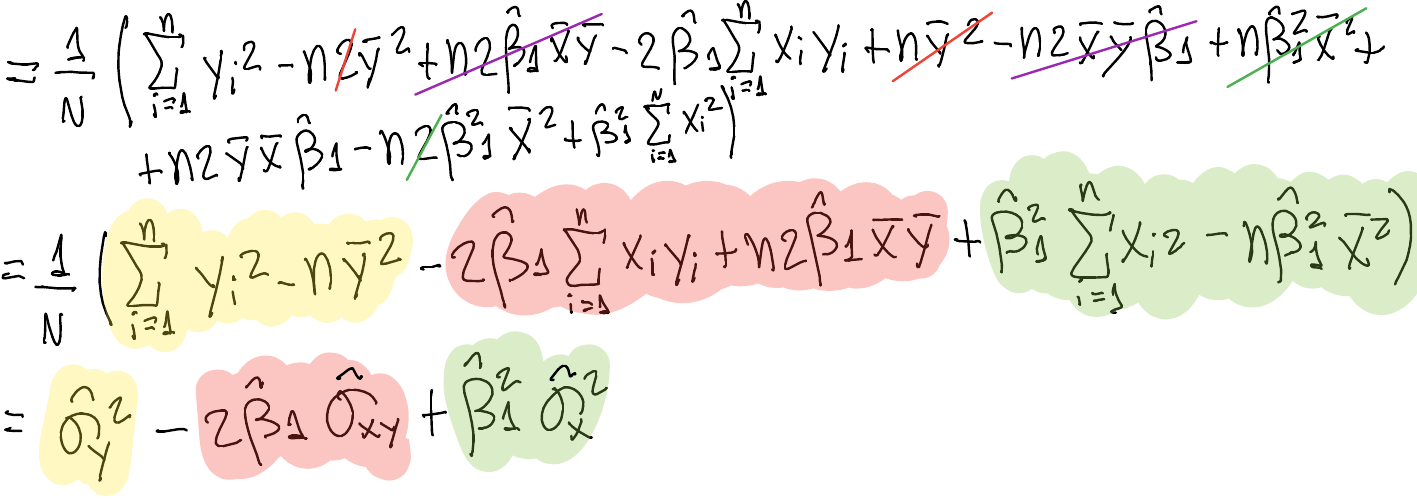 = 1/N ( ∑_{i=1}^{n} y_i² - n2ȳ² + n2β̂₁x̄ȳ - 2β̂₁ ∑_{i=1}^{n} x_i y_i + nȳ² - n2x̄ȳβ̂₁ + nβ̂₁²x̄² +
+ n2ȳx̄β̂₁ - n2β̂₁²x̄² + β̂₁² ∑_{i=1}^{N} x_i² )
= 1/N ( ∑_{i=1}^{n} y_i² - nȳ² - 2β̂₁ ∑_{i=1}^{n} x_i y_i + n2β̂₁x̄ȳ + β̂₁² ∑_{i=1}^{n} x_i² - nβ̂₁²x̄² )
= σ̂_y² - 2β̂₁ σ̂_xy + β̂₁² σ̂_x²